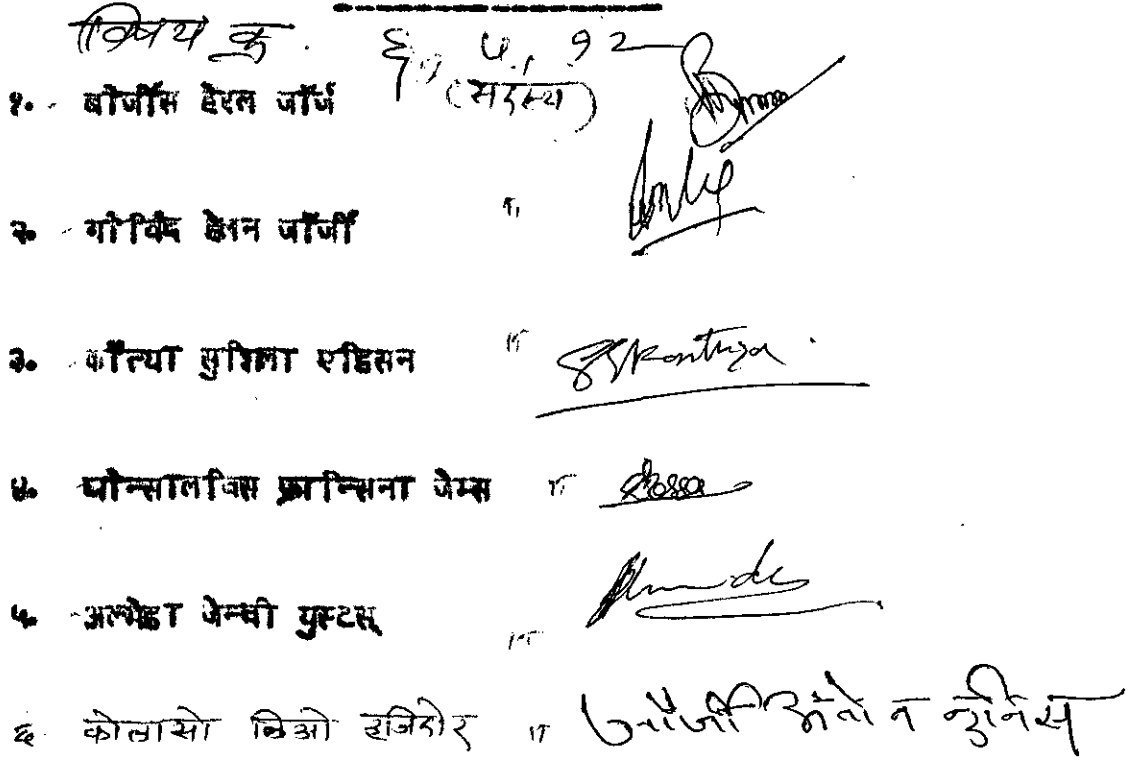 विषय क्र. ६, ५, १२
१. बोर्जीस हेरल जॉर्ज (सदस्य)
२. गोविंद हेलन जॉर्जी "
३. काँत्या सुशिला एडिसन " SSKantya
४. घोन्सालविस फ्रान्सिना जेम्स "
५. अल्मेडा जेन्सी युस्टस् "
६ कोलासो लिओ इजिदोर " जॉर्जी अंतोन नुनिस